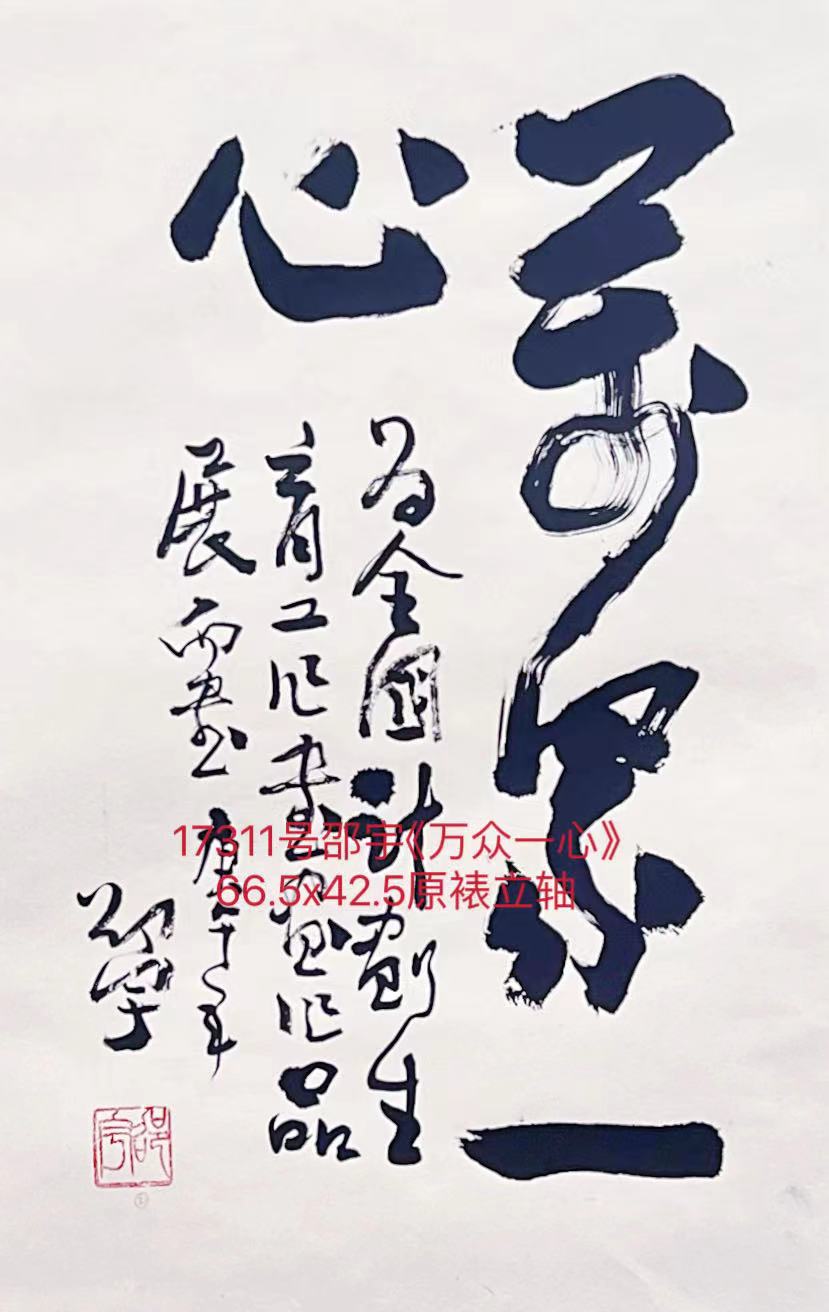 萬眾一
心
为全國计劃生
育工作書画作品
展而書 庚午年
邵宇
邵宇
17311号邵宇《万众一心》
66.5x42.5原裱立轴